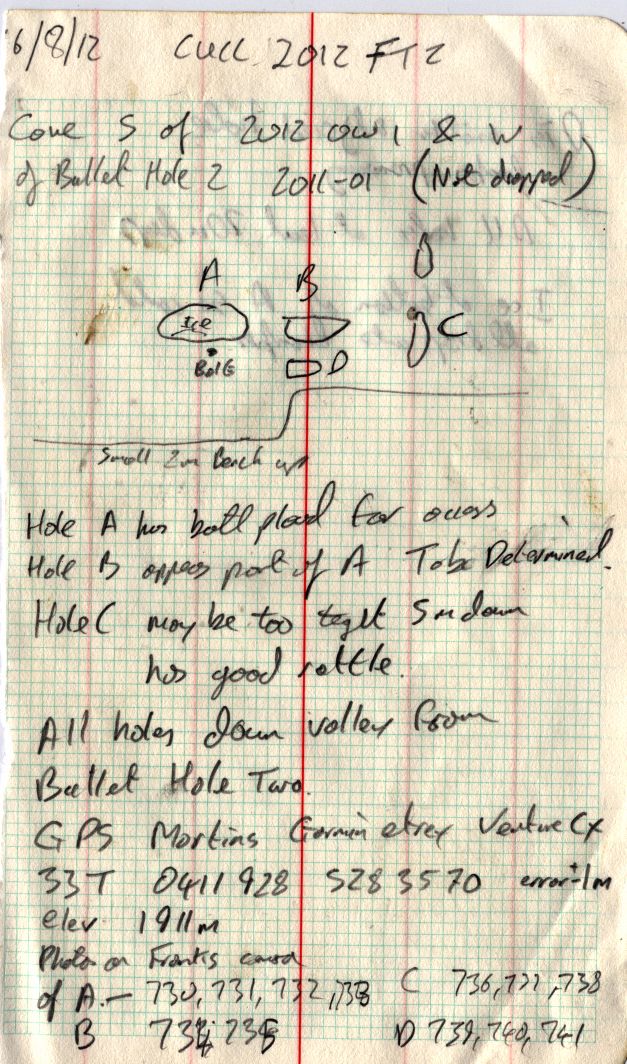 6/8/12 CUCC 2012 FT2
Cave S of 2012 OW1 & W
of Bullet Hole 2 2011-01 (Not dropped)
A B
Ice C
Bolt D
Small 2m Bench up
Hole A has bolt placed for access
Hole B appears part of A To be Determined.
Hole C may be too tight 5m down
has good rattle.
All holes down valley from
Bullet Hole Two.
GPS Martins Garmin etrex Venture Cx
33T 0411928 5283570 error ±1m
elev 1911m
Photos on Franks camera
of A.- 730, 731, 732, 733 C 736, 737, 738
B 734, 735 D 739, 740, 741